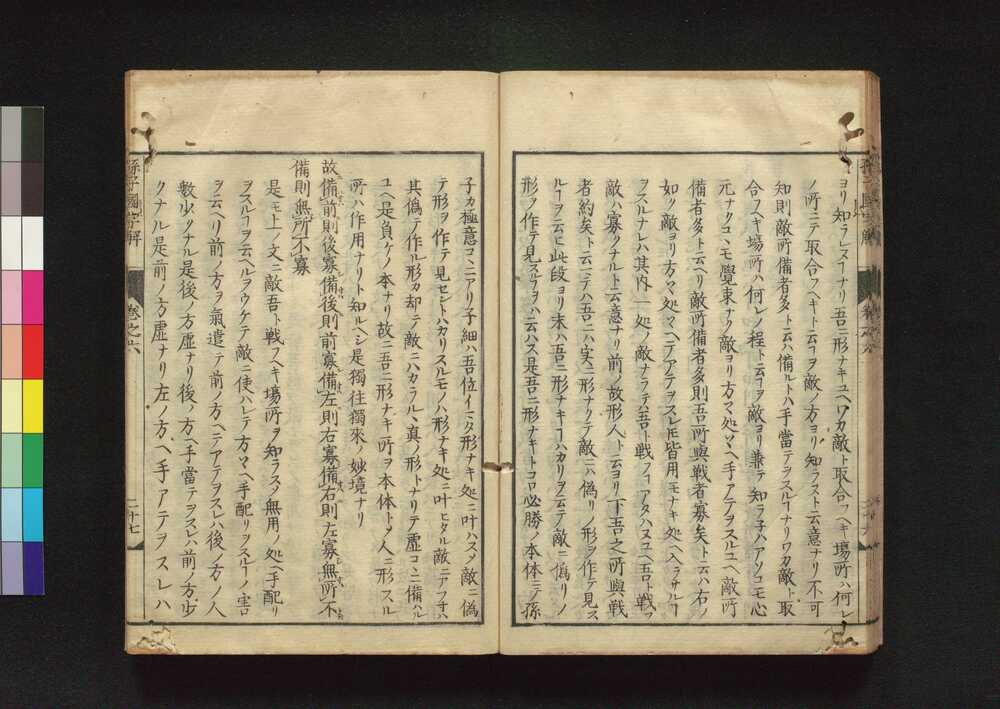 ヨリ知ラレヌフナリ吾ニ形ナキユヘワカ敵ト取合フヘキ場所ハ何レ
ノ所ニテ取合フヘキト云フヲ敵ノ方ヨリ知ラスト云意ナリ不可
知則敵所備者多ト云ハ備ルトハ手當テヲスルフナリワカ敵ト取
合フヘキ場所ハ何レノ程ト云フヲ敵ヨリ兼テ知ラ子ハアソコモ心
元ナクコヽモ覺束ナク敵ヨリ方〻処〻ヘ手アテヲスルユヘ敵所
備者多ト云ヘリ敵所備者多則吾所與戰者寡矣ト云ハ右ノ
如ク敵ヨリ方〻処〻ヘテアテヲスレ𪜈皆用モナキ処ヘ入ラサルフ
ヲスルナレハ其内一処ノ敵ナラテハ吾ト戦フフアタハヌユヘ吾ト戦フ
敵ハ寡クナルト云意ナリ前ノ故形人ト云ヨリ下吾之所與戰
者約矣ト云マテハ吾ニハ実ニ形ナクテ敵ニハ偽リノ形ヲ作テ見ス
ルフヲ云ヒ此段ヨリ末ハ吾ニ形ナキフハカリヲ云テ敵ニ偽リノ
形ヲ作テ見スルフヲハ云ハス是吾ニ形ナキトコロ必勝ノ本体ニテ孫
子カ極意コヽニアリ子細ハ吾位イマタ形ナキ処ニ叶ハスメ敵ニ偽
テ形ヲ作テ見セントハカリスルモノハ形ナキ処ニ叶ヒタル敵ニアフ寸ハ
其偽テ作ル形カ却テ敵ニハカラルヽ真ノ形トナリテ虚コヽニ備ハル
ユヘ是負ケノ本ナリ故ニ吾ニ形ナキ所ヲ本体トメ人ニ形スル
所ハ作用ナリト知ルヘシ是獨往獨來ノ妙境ナリ
故備前則後寡備後則前寡備左則右寡備右則左寡無所不
備則無所不寡
是モ上ノ文ニ敵吾ト戦フヘキ場所ヲ知ラスメ無用ノ処ヘ手配リ
ヲスルフヲ云ヘルヲウケテ敵ニ使ハレテ方〻ヘ手配リヲスルフノ害
ヲ云ヘリ前ノ方ヲ氣遣テ前ノ方ヘテアテヲスレハ後ノ方ノ人
數少クナル是後ノ方虚ナリ後ノ方ヘ手當テヲスレハ前ノ方少
クナル是前ノ方虚ナリ左ノ方ヘ手アテヲスレハ
孫子國字解
卷之六
二十七